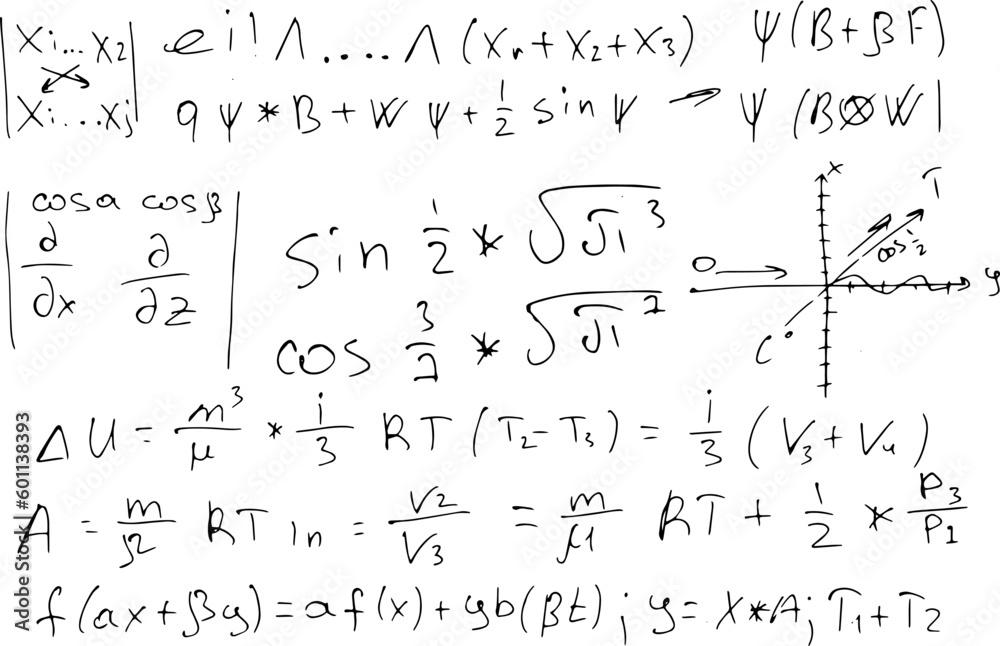 |Xi...X2| ei! Λ....Λ (Xr+X2+X3) Ψ(B+βF)
|Xi...Xj| 9Ψ*B+WΨ+1/2 sinΨ → Ψ/B⊗W|
|cosa cosβ|
|∂/∂x ∂/∂z|
sin 1/2 * √π³
cos 3/2 * √π²
x
T
cos 1/2
O →
y
C°
ΔU = m³/μ * i/3 RT (T2-T3) = i/3 (V3+V4)
A = m/μ RT ln = V2/V3 = m/μ RT + 1/2 * P3/P1
f(ax+βy)=af(x)+yb(βt); y=X*A; T1+T2
Adobe Stock | #601138393